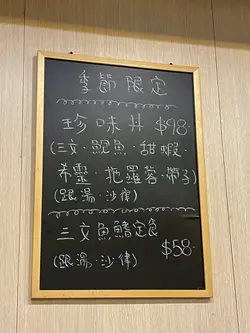 季節限定
珍味丼 $98-
(三文·鯇魚·甜蝦·
希靈·拖羅蓉·帶子)
(跟湯·沙律)
三文魚鰭定食
$58-
(跟湯·沙律)